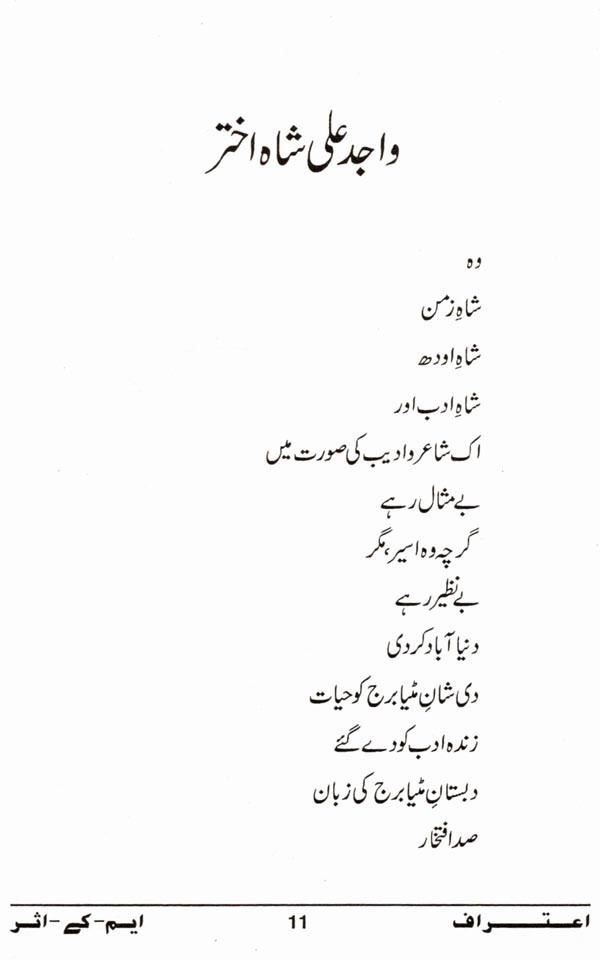 واجد علی شاہ اختر
وہ
شاہِ زمن
شاہِ اودھ
شاہِ ادب اور
اک شاعر و ادیب کی صورت میں
بے مثال رہے
گرچہ وہ اسیر، مگر
بے نظیر رہے
دنیا آباد کر دی
دی شانِ مٹیا برج کو حیات
زندہ ادب کو دے گئے
دبستانِ مٹیا برج کی زبان
صد افتخار
اعتراف 11 ایم-کے-اثر